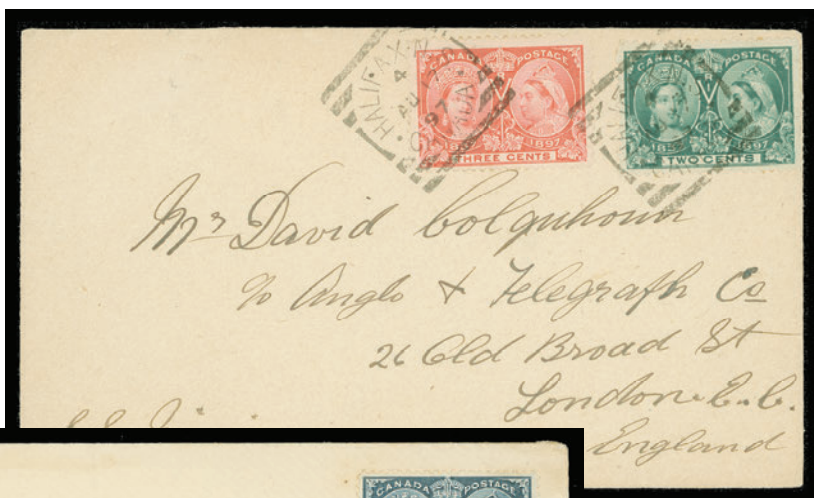 HALIFAX·N
4
AU 17
97
CANADA
CANADA POSTAGE
1897
THREE CENTS
CANADA POSTAGE
1897
TWO CENTS
Mr David Colquhoun
c/o Anglo & Telegraph Co
26 Old Broad St
London. E. C.
England
CANADA POSTAGE